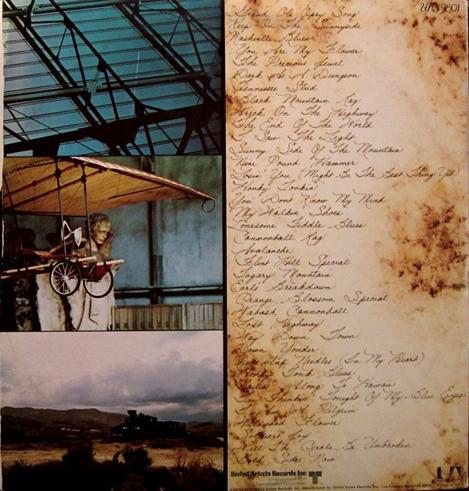 UAS 9801
Grand Ole Opry Song
Keep On The Sunnyside
Nashville Blues
You Are My Flower
The Precious Jewel
Dark As A Dungeon
Tennessee Stud
Black Mountain Rag
Wreck On The Highway
The End Of The World
I Saw The Light
Sunny Side Of The Mountain
Nine Pound Hammer
Losin' You (Might Be The Best Thing Yet)
Honky Tonkin'
You Don't Know My Mind
My Walkin' Shoes
Lonesome Fiddle Blues
Cannonball Rag
Avalanche
Flint Hill Special
Togary Mountain
Earl's Breakdown
Orange Blossom Special
Wabash Cannonball
Lost Highway
Way Down Town
Down Yonder
Pins And Needles (In My Heart)
Honky Tonk Blues
Sailin' Along To Hawaii
I'm Thinking Tonight Of My Blue Eyes
I Am A Pilgrim
Wildwood Flower
Soldier's Joy
Will The Circle Be Unbroken
Both Sides Now
United Artists Records Inc
UA